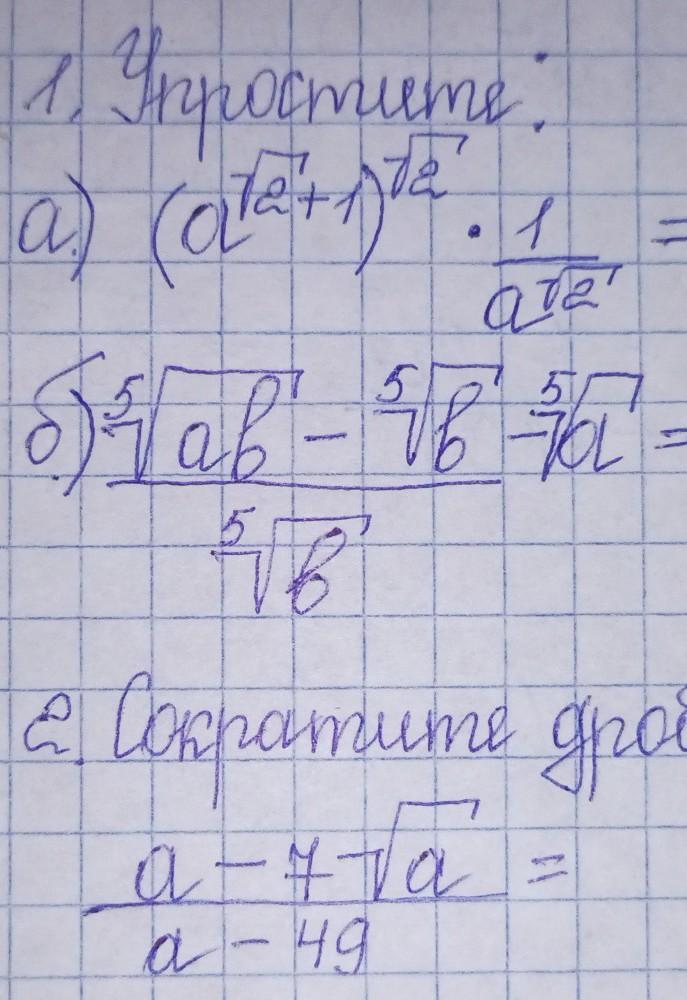 1. Упростите:
а) (a^{√2+1})^{√2} · 1/a^{√2} =
б) (⁵√ab − ⁵√b)/⁵√b − ⁵√a =
2. Сократите дроб
(a − 7√a)/(a − 49) =